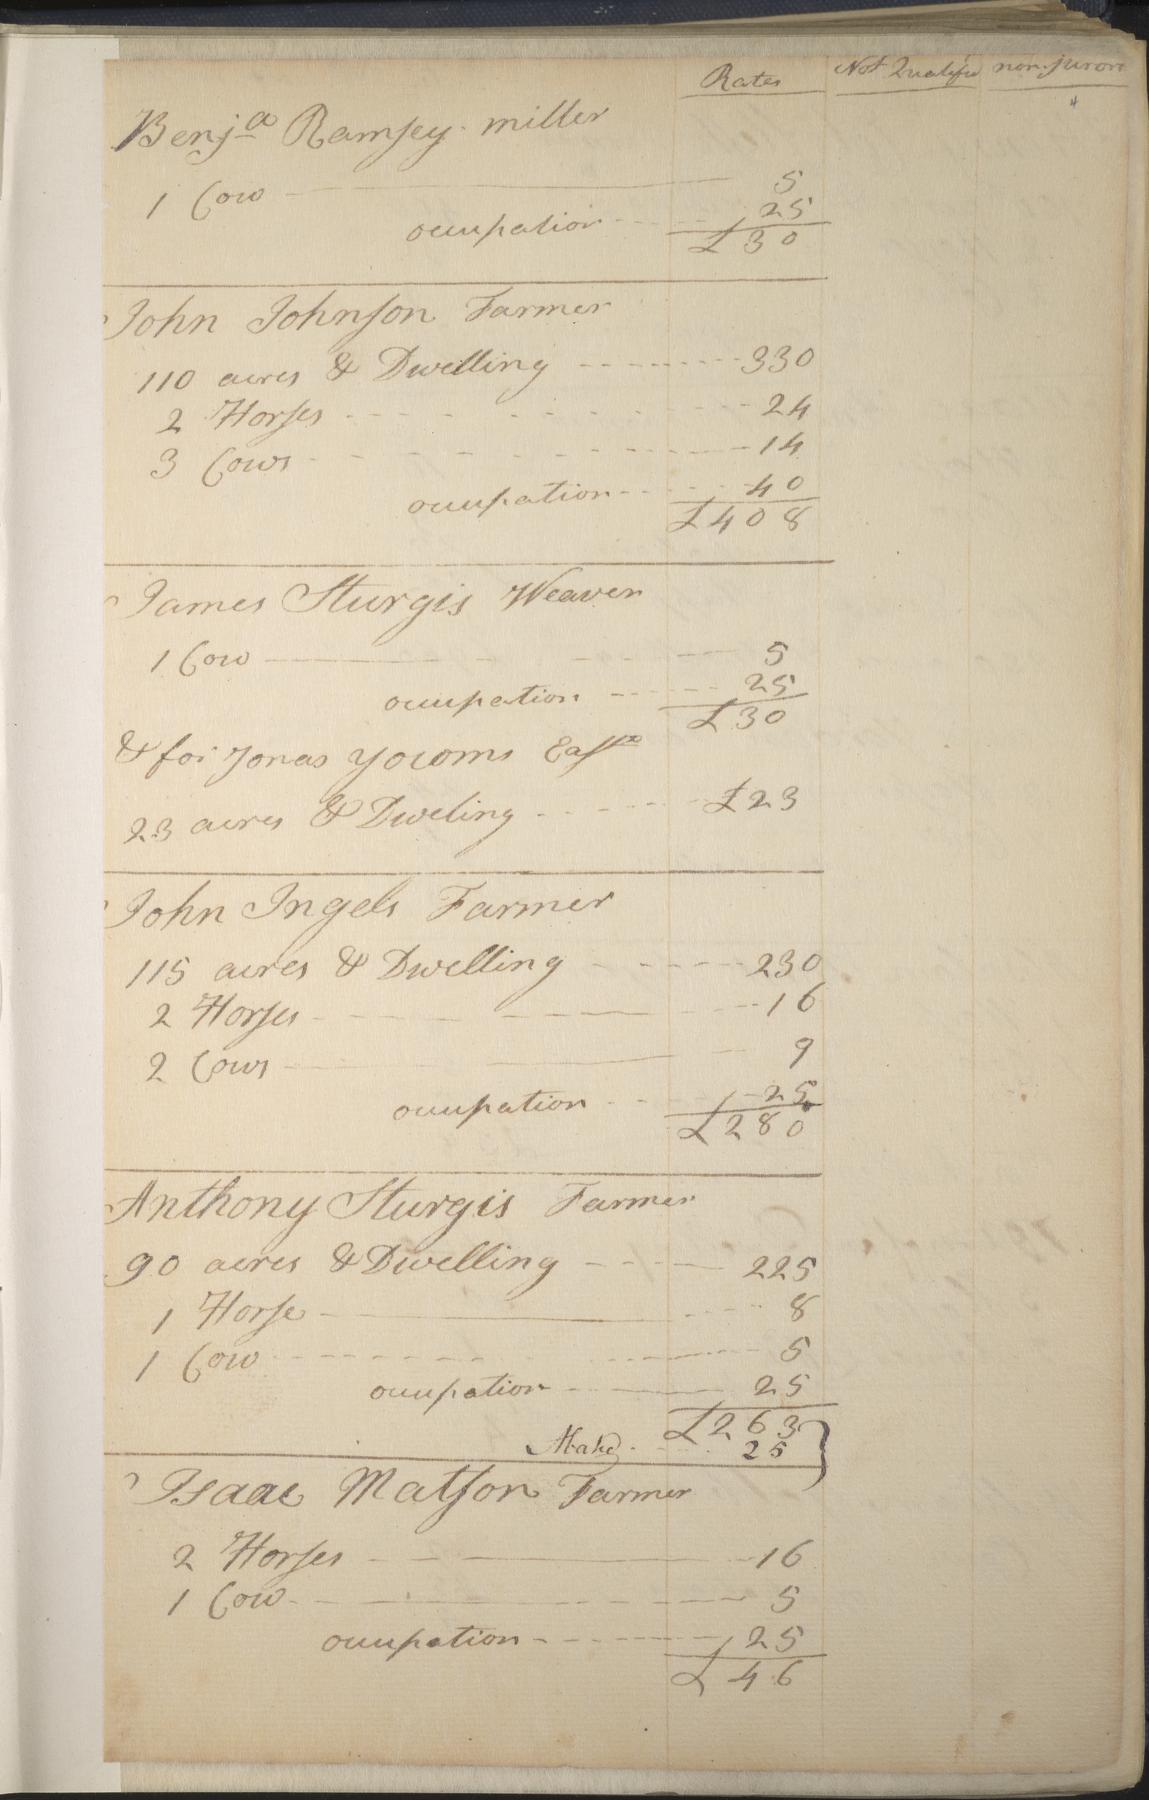 Rates Not Qualifie non-jurors
Benja Ramsey miller
1 Cow 5
ocupation 25
£30
John Johnson Farmer
110 acres & Dwelling 330
2 Horses 24
3 Cows 14
ocupation 40
£408
James Sturgis Weaver
1 Cow 5
ocupation 25
£30
& for Jonas Yocoms
23 acres & Dweling £23
John Ingels Farmer
115 acres & Dwelling 230
2 Horses 16
2 Cows 9
ocupation 25
£280
Anthony Sturgis Farmer
90 acres & Dwelling 225
1 Horse 8
1 Cow 5
ocupation 25
£263
25
Isaac Matson Farmer
2 Horses 16
1 Cow 5
ocupation 25
£46